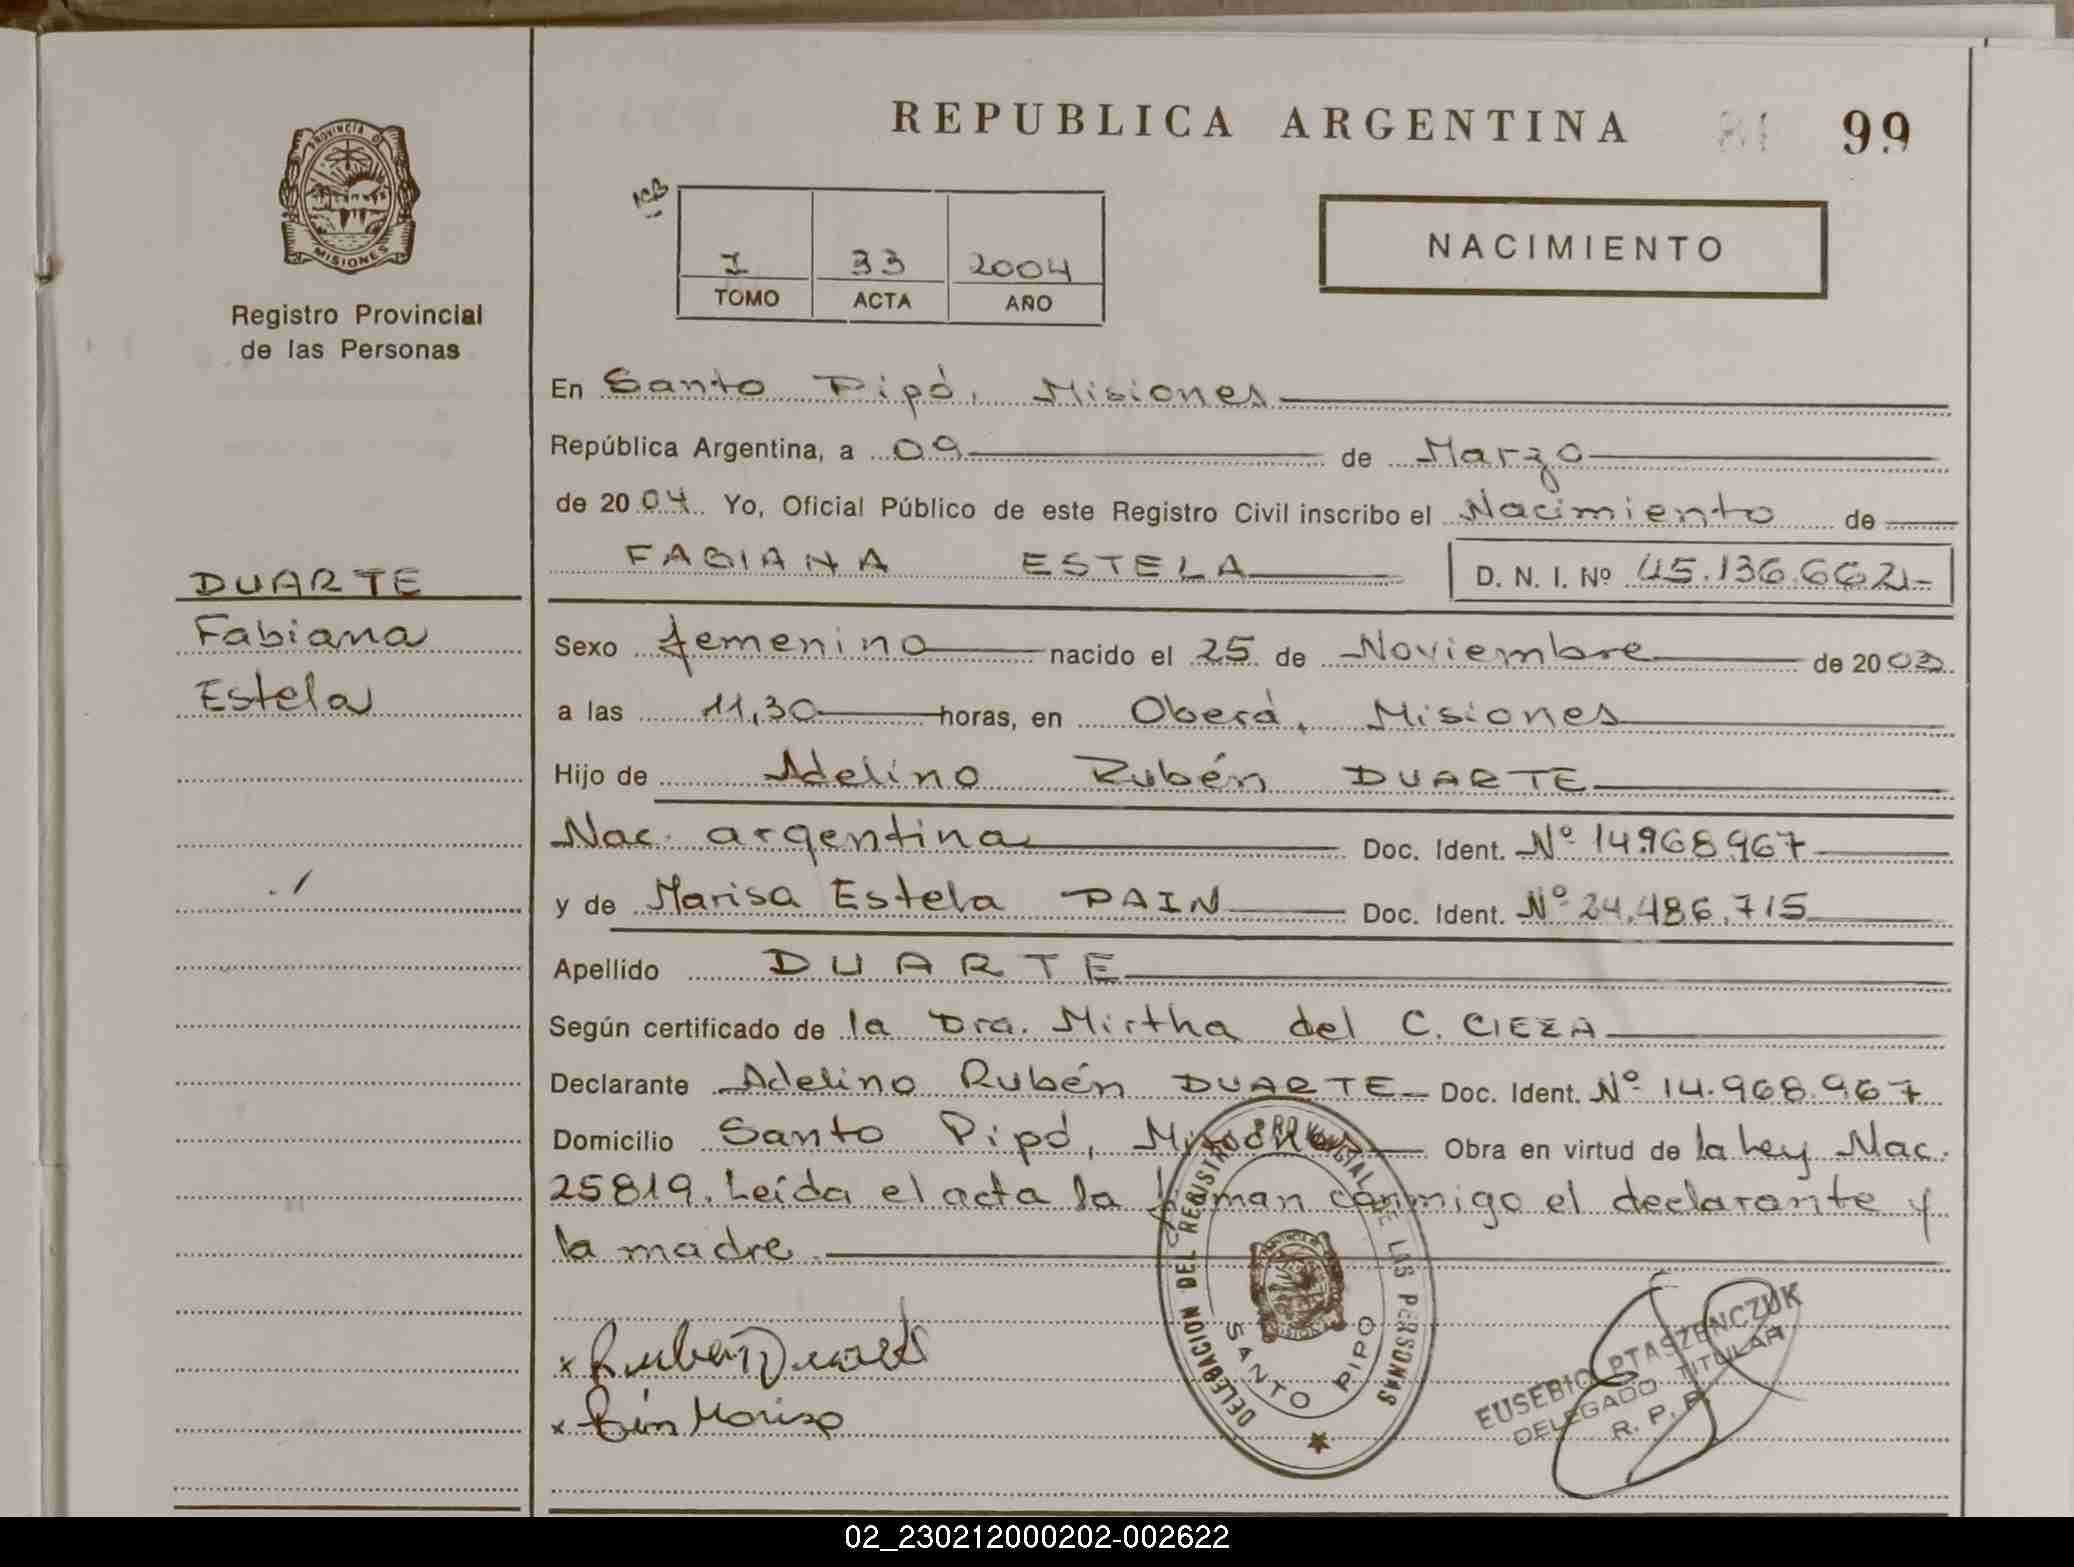 REPUBLICA ARGENTINA 99
PROVINCIA DE
MISIONES
Registro Provincial
de las Personas
I 33 2004
TOMO ACTA AÑO
NACIMIENTO
En Santo Pipó, Misiones
República Argentina, a 09 de Marzo
de 2004. Yo, Oficial Público de este Registro Civil inscribo el Nacimiento de
FABIANA ESTELA D. N. I. Nº 45.136.662
DUARTE
Fabiana
Estela
Sexo femenino nacido el 25 de Noviembre de 2003
a las 11,30 horas, en Oberá, Misiones
Hijo de Adelino Rubén DUARTE
Nac. argentina Doc. Ident. Nº 14.968.967
y de Marisa Estela PAIN Doc. Ident. Nº 24.486.715
Apellido DUARTE
Según certificado de la Dra. Mirtha del C. CIEZA
Declarante Adelino Rubén DUARTE Doc. Ident. Nº 14.968.967
Domicilio Santo Pipó, Misiones Obra en virtud de la Ley Nac.
25819. Leída el acta la firman conmigo el declarante y
la madre.
DELEGACION DEL REGISTRO PROVINCIAL DE LAS PERSONAS
SANTO PIPO
x Ruben Duarte
x Marisa
EUSEBIO PTASZENCZUK
DELEGADO TITULAR
R. P. P.
02_230212000202-002622